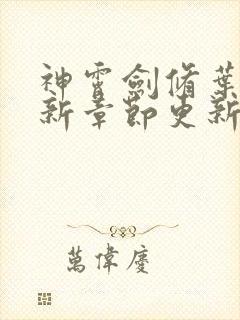 神霄劍脩葉
新章節更新
萬偉慶